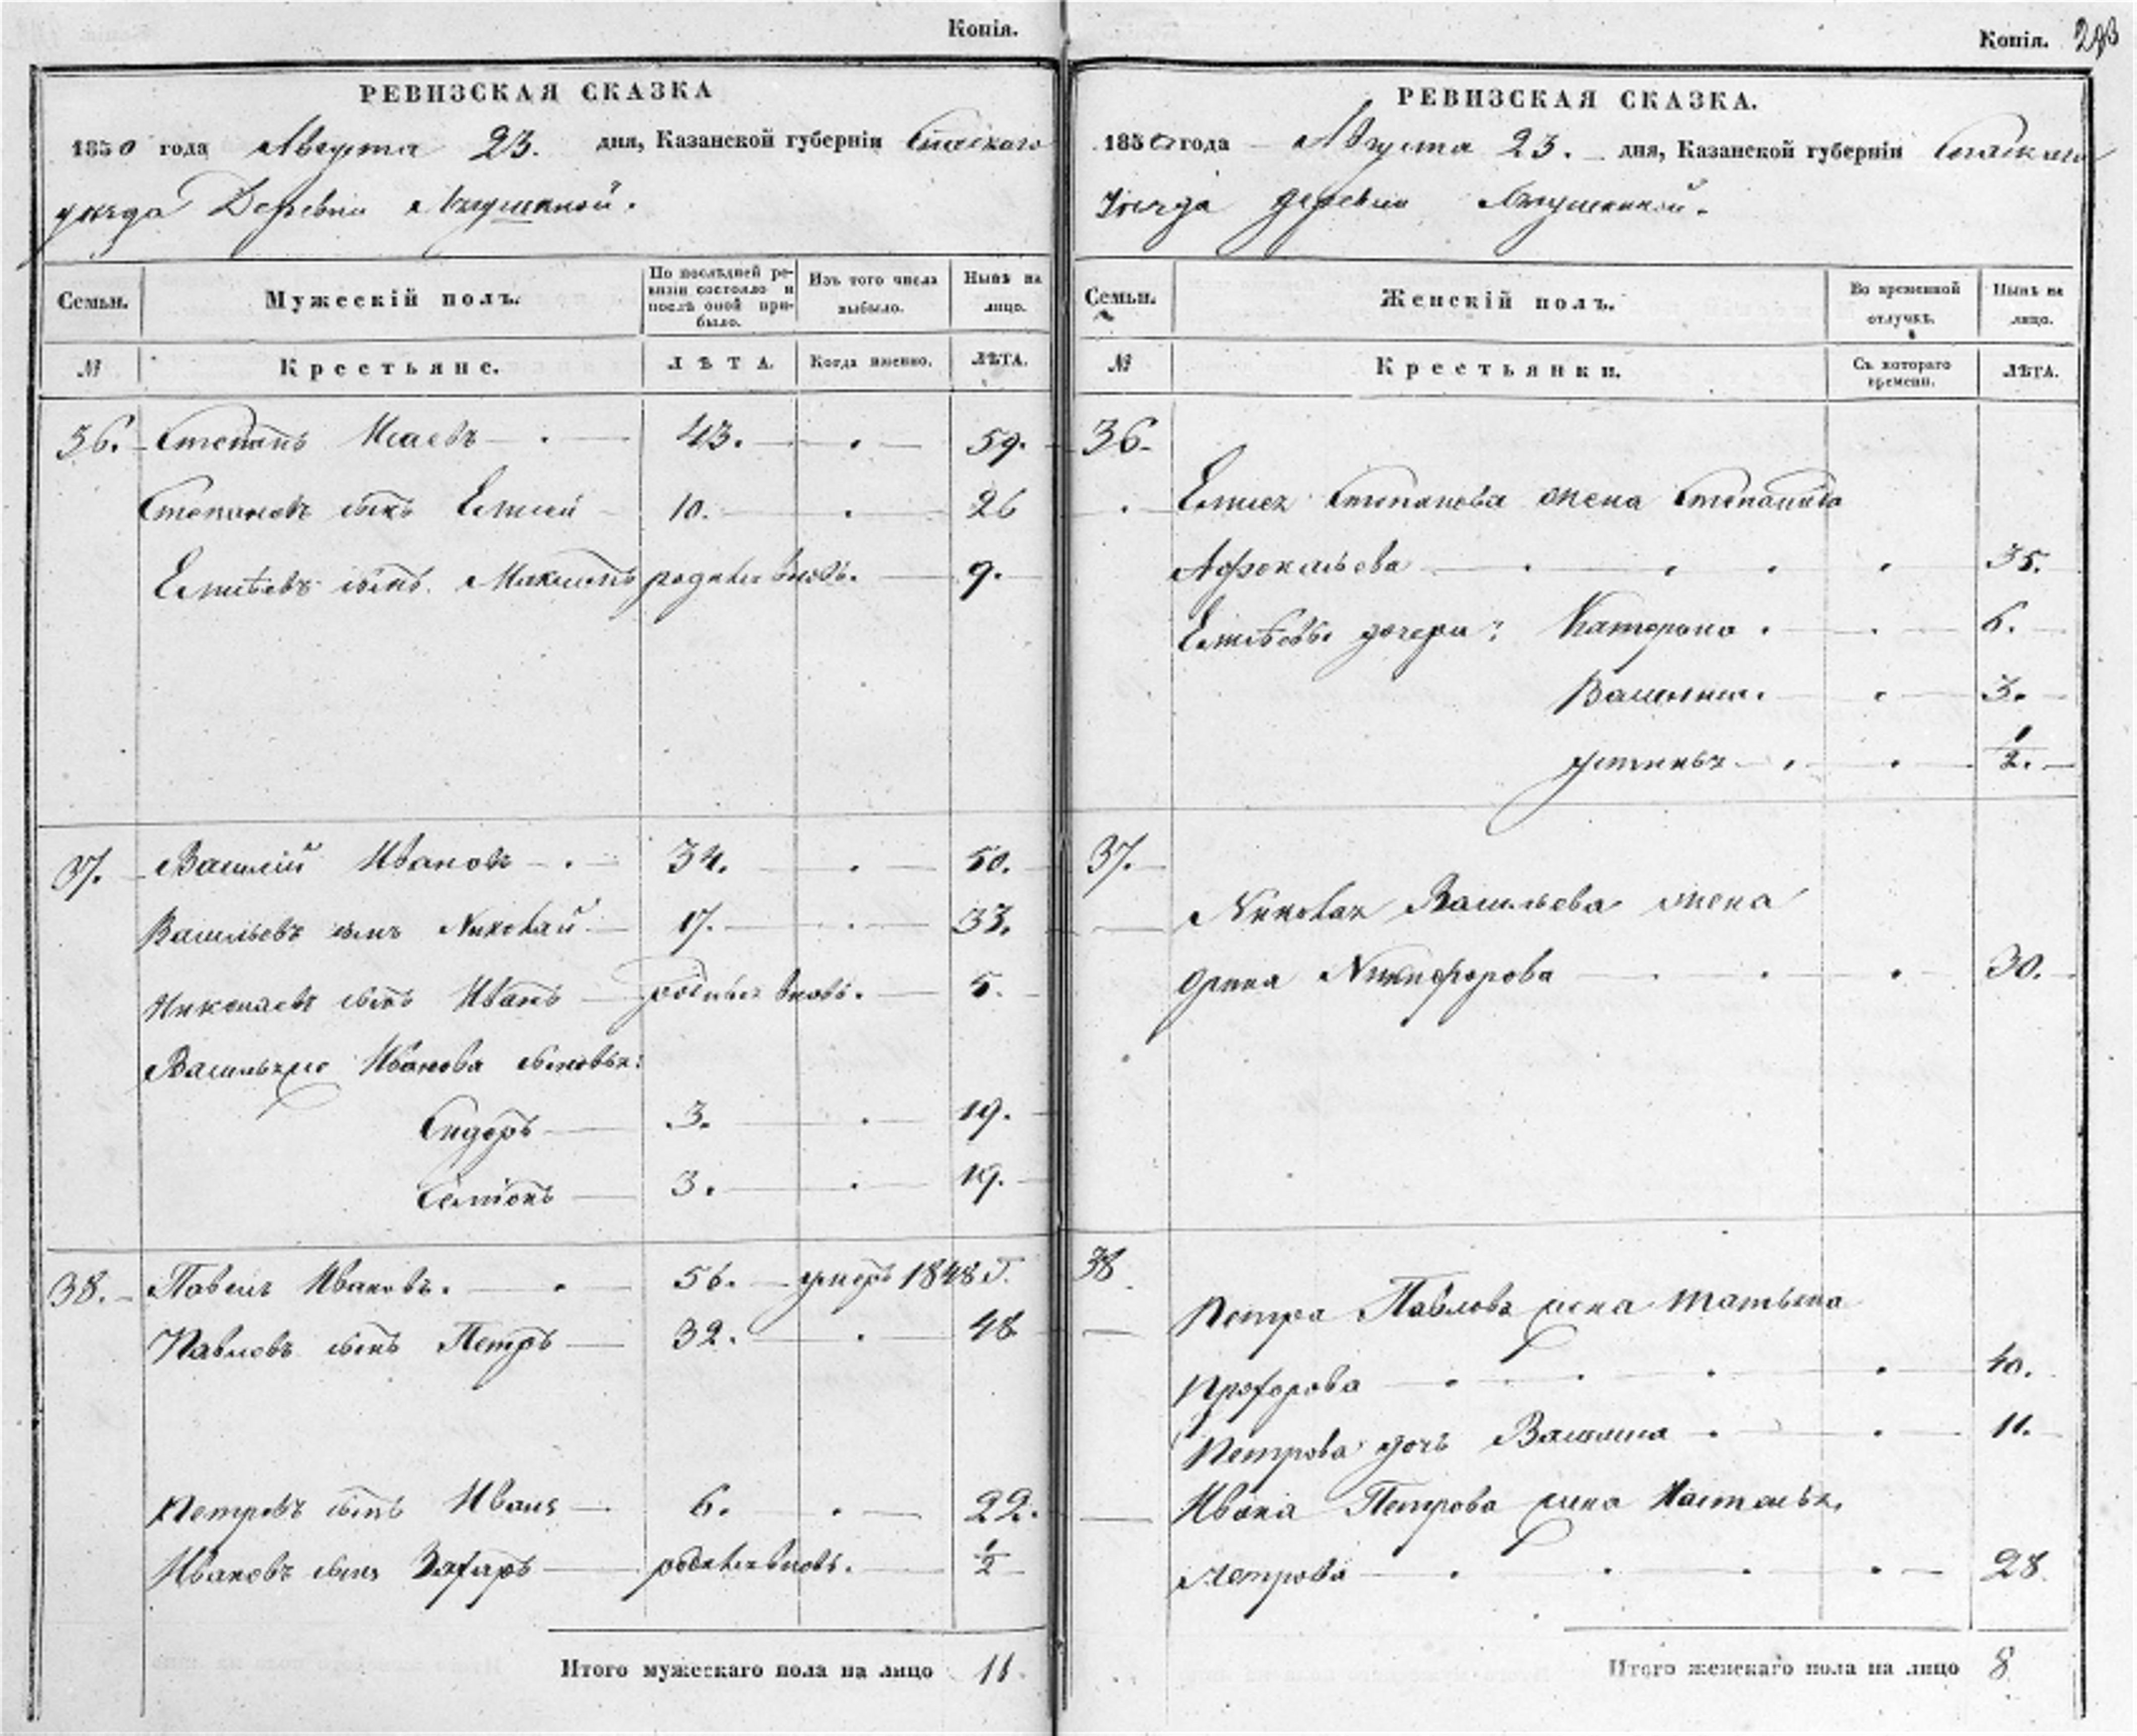 Копія.
РЕВИЗСКАЯ СКАЗКА
1850 года Августа 23. дня, Казанской губерніи Спаскаго
уезда Деревни
Семьи.
Мужескій полъ.
По послѣдней ре-
визіи состояло и
послѣ оной при-
было.
Изъ того числа
выбыло.
Нынѣ на
лицо.
№
Крестьяне.
ЛѢТА.
Когда именно.
ЛѢТА.
36. Степанъ Исаевъ 43. 59.
Степановъ сынъ Елисей 10. 26
Елисѣевъ сынъ Максимъ родился вновь. 9.
37. Василій Ивановъ 34. 50.
Васильевъ сынъ Николай 17. 33.
Николаевъ сынъ Иванъ родился вновь. 5.
Ивановa сыновья:
Сидоръ 3. 19.
Семіонъ 3. 19.
38. Павелъ Ивановъ. 56. умеръ 1848 г.
Павловъ сынъ Петръ 32. 48
Петровъ сынъ Иванъ 6. 22.
Ивановъ сынъ Захаръ родился вновь. 1/2
Итого мужескаго пола на лицо 11.
Копія. 293
РЕВИЗСКАЯ СКАЗКА.
1850 года Августа 23. дня, Казанской губерніи Спаскаго
Уезда деревни
Семьи.
Женскій полъ.
Во временной
отлучкѣ.
Нынѣ на
лицо.
№
Крестьянки.
Съ котораго
времени.
ЛѢТА.
36.
Елисея Степанова жена Степанида
35.
Елисѣевы дочери: Катерина 6.
Василиса. 3.
Устинья 1/2.
37.
Николая Васильева жена
Орина Никифорова 30.
38
Петра Павлова жена Татьяна
Прохорова 40.
Петрова дочь Василиса 11.
Ивана Петрова жена Настасья
Петрова 28.
Итого женскаго пола на лицо 8